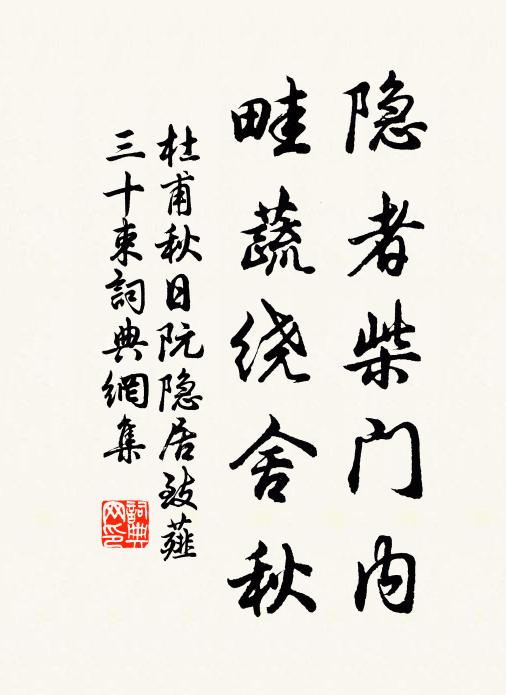 隐者柴门内
畦蔬绕舍秋
杜甫秋日阮隐居致薤
三十束詞典網集
詞典
网印